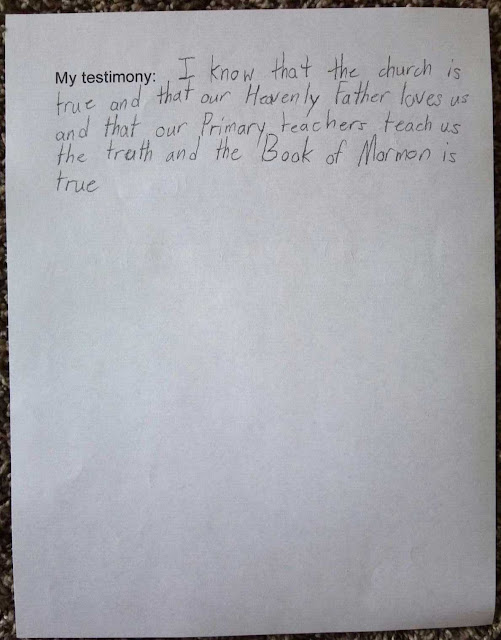 My testimony: I know that the church is
true and that our Heavenly Father loves us
and that our Primary teachers teach us
the truth and the Book of Mormon is
true